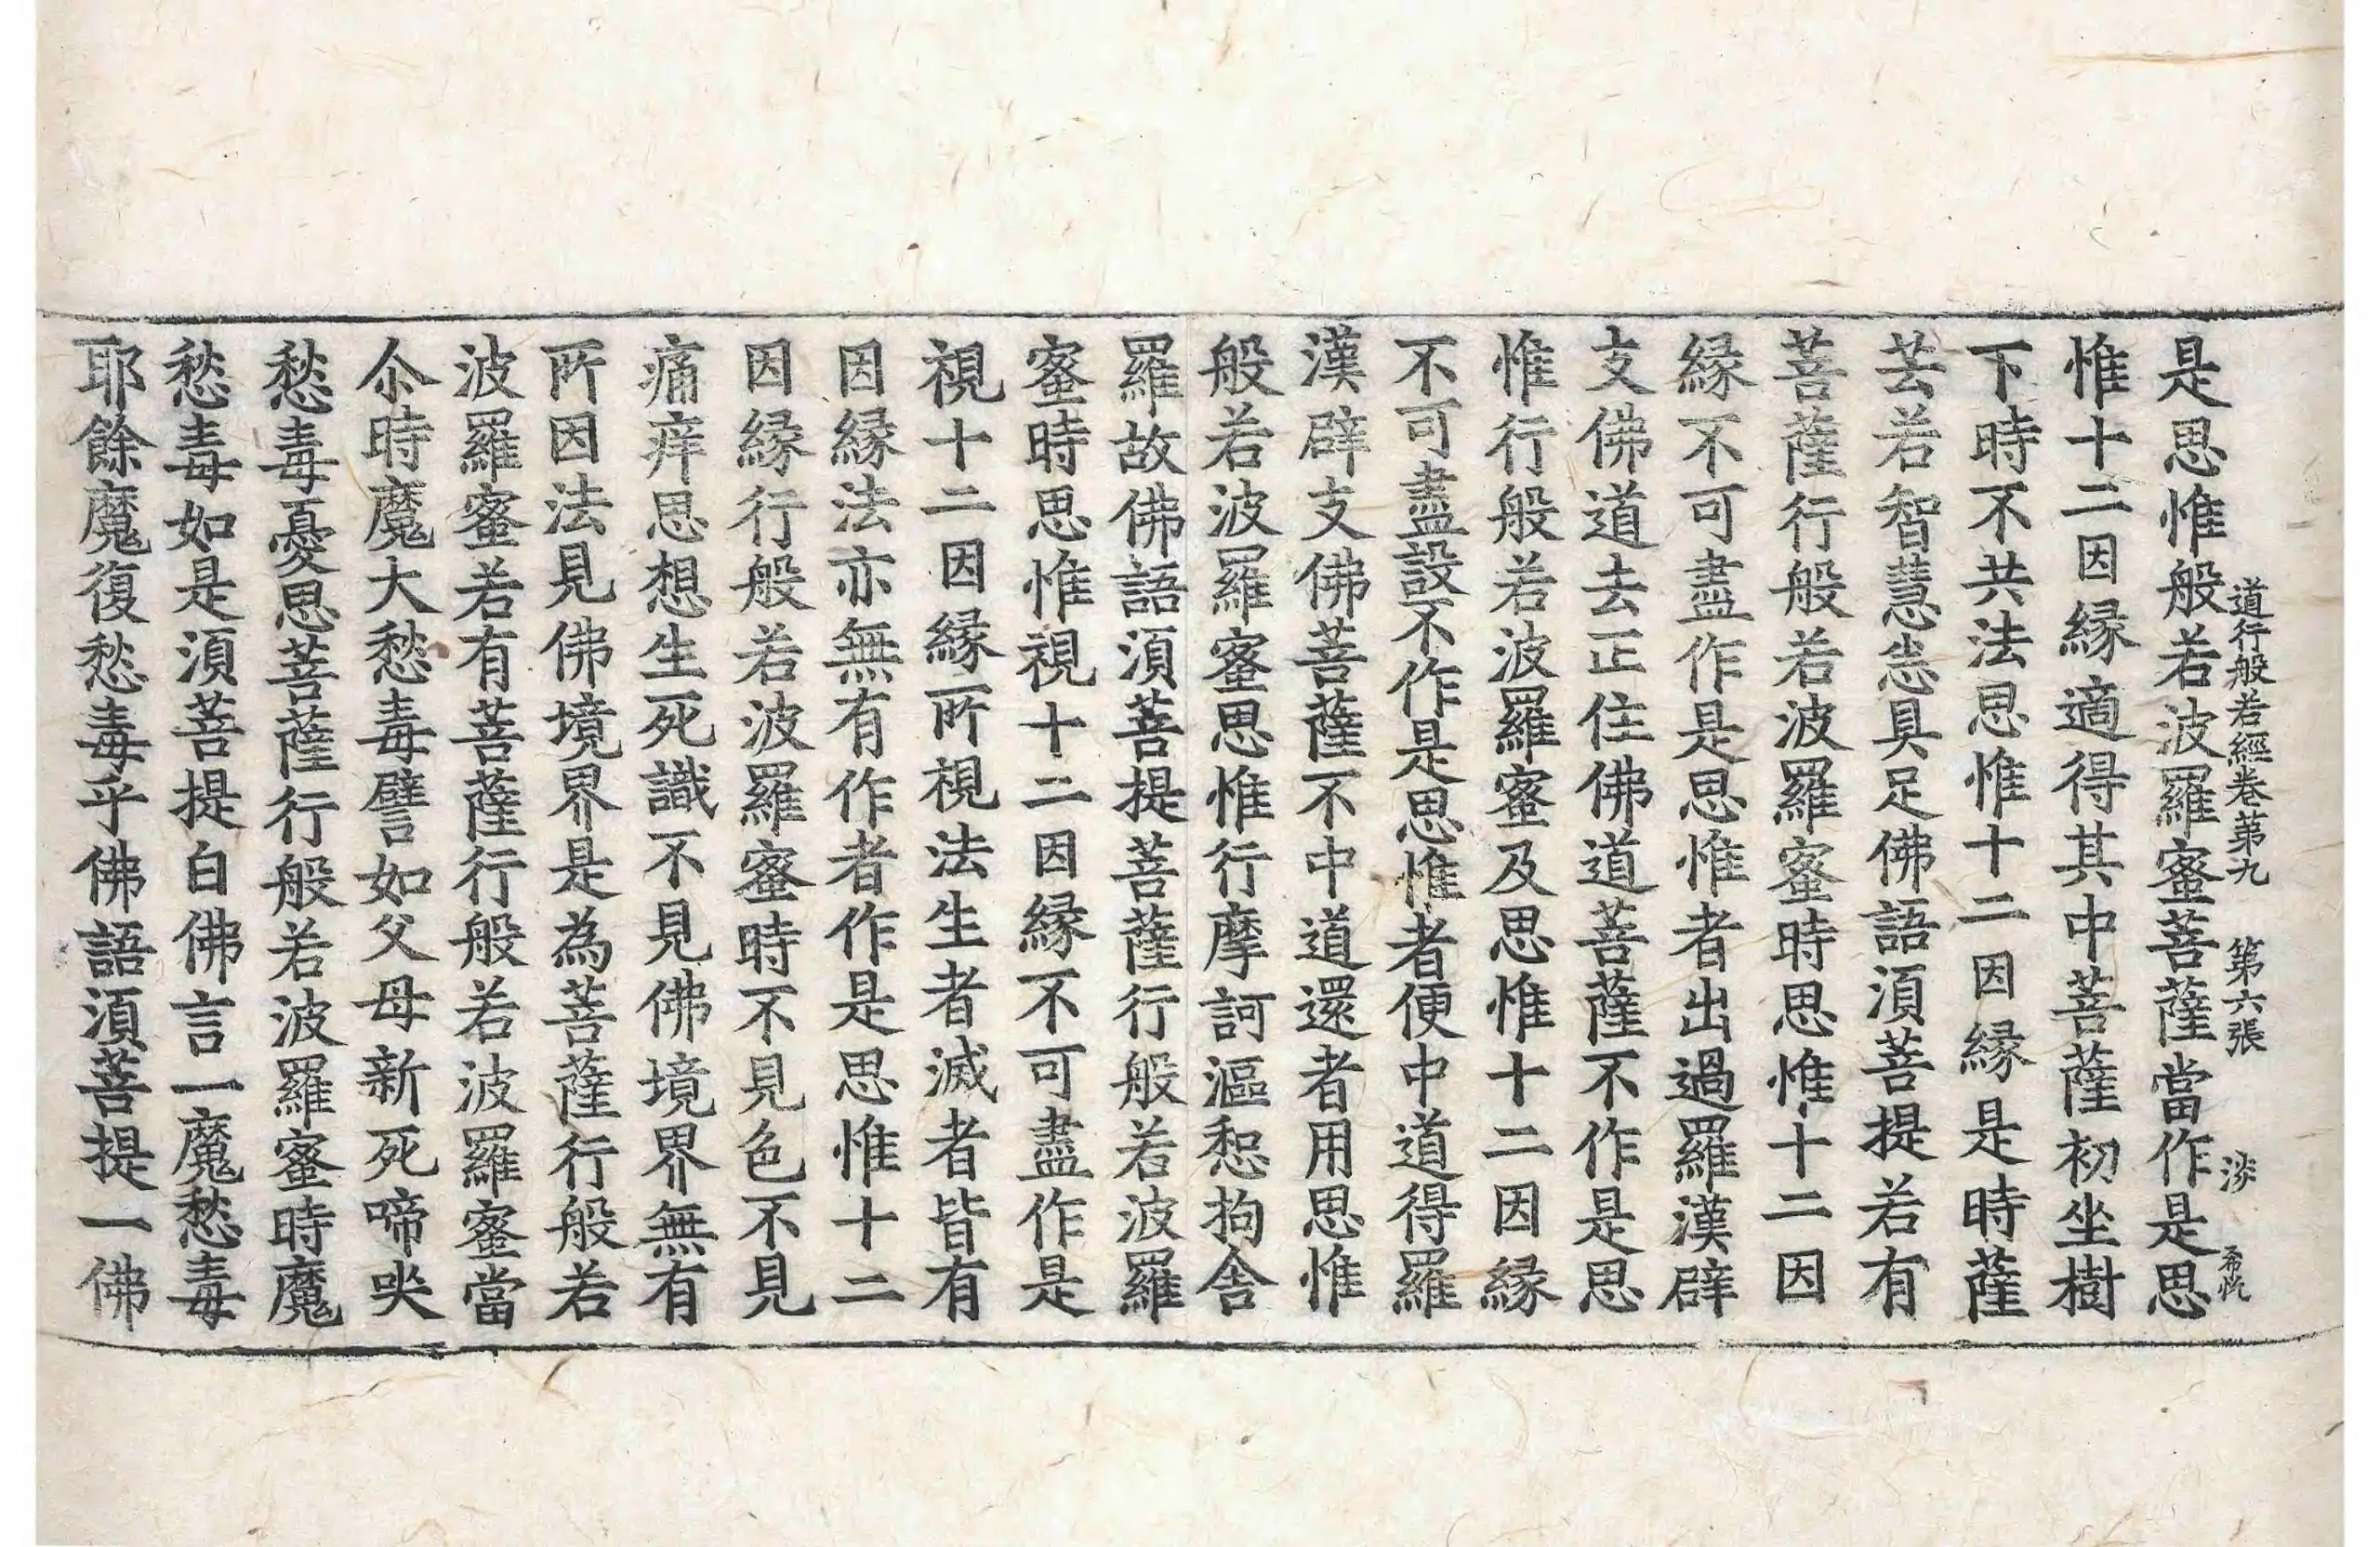 道行般若經卷第九　第六張　淡
是思惟般若波羅蜜菩薩當作是思
惟十二因緣適得其中菩薩初坐樹
下時不共法思惟十二因緣是時薩
芸若智慧悉具足佛語須菩提若有
菩薩行般若波羅蜜時思惟十二因
緣不可盡作是思惟者出過羅漢辟
支佛道去正住佛道菩薩不作是思
惟行般若波羅蜜及思惟十二因緣
不可盡設不作是思惟者便中道得羅
漢辟支佛菩薩不中道還者用思惟
般若波羅蜜思惟行摩訶漚惒拘舍
羅故佛語須菩提菩薩行般若波羅
蜜時思惟視十二因緣不可盡作是
視十二因緣所視法生者滅者皆有
因緣法亦無有作者作是思惟十二
因緣行般若波羅蜜時不見色不見
痛痒思想生死識不見佛境界無有
所因法見佛境界是為菩薩行般若
波羅蜜若有菩薩行般若波羅蜜當
尒時魔大愁毒譬如父母新死啼哭
愁毒憂思菩薩行般若波羅蜜時魔
愁毒如是須菩提白佛言一魔愁毒
耶餘魔復愁毒乎佛語須菩提一佛